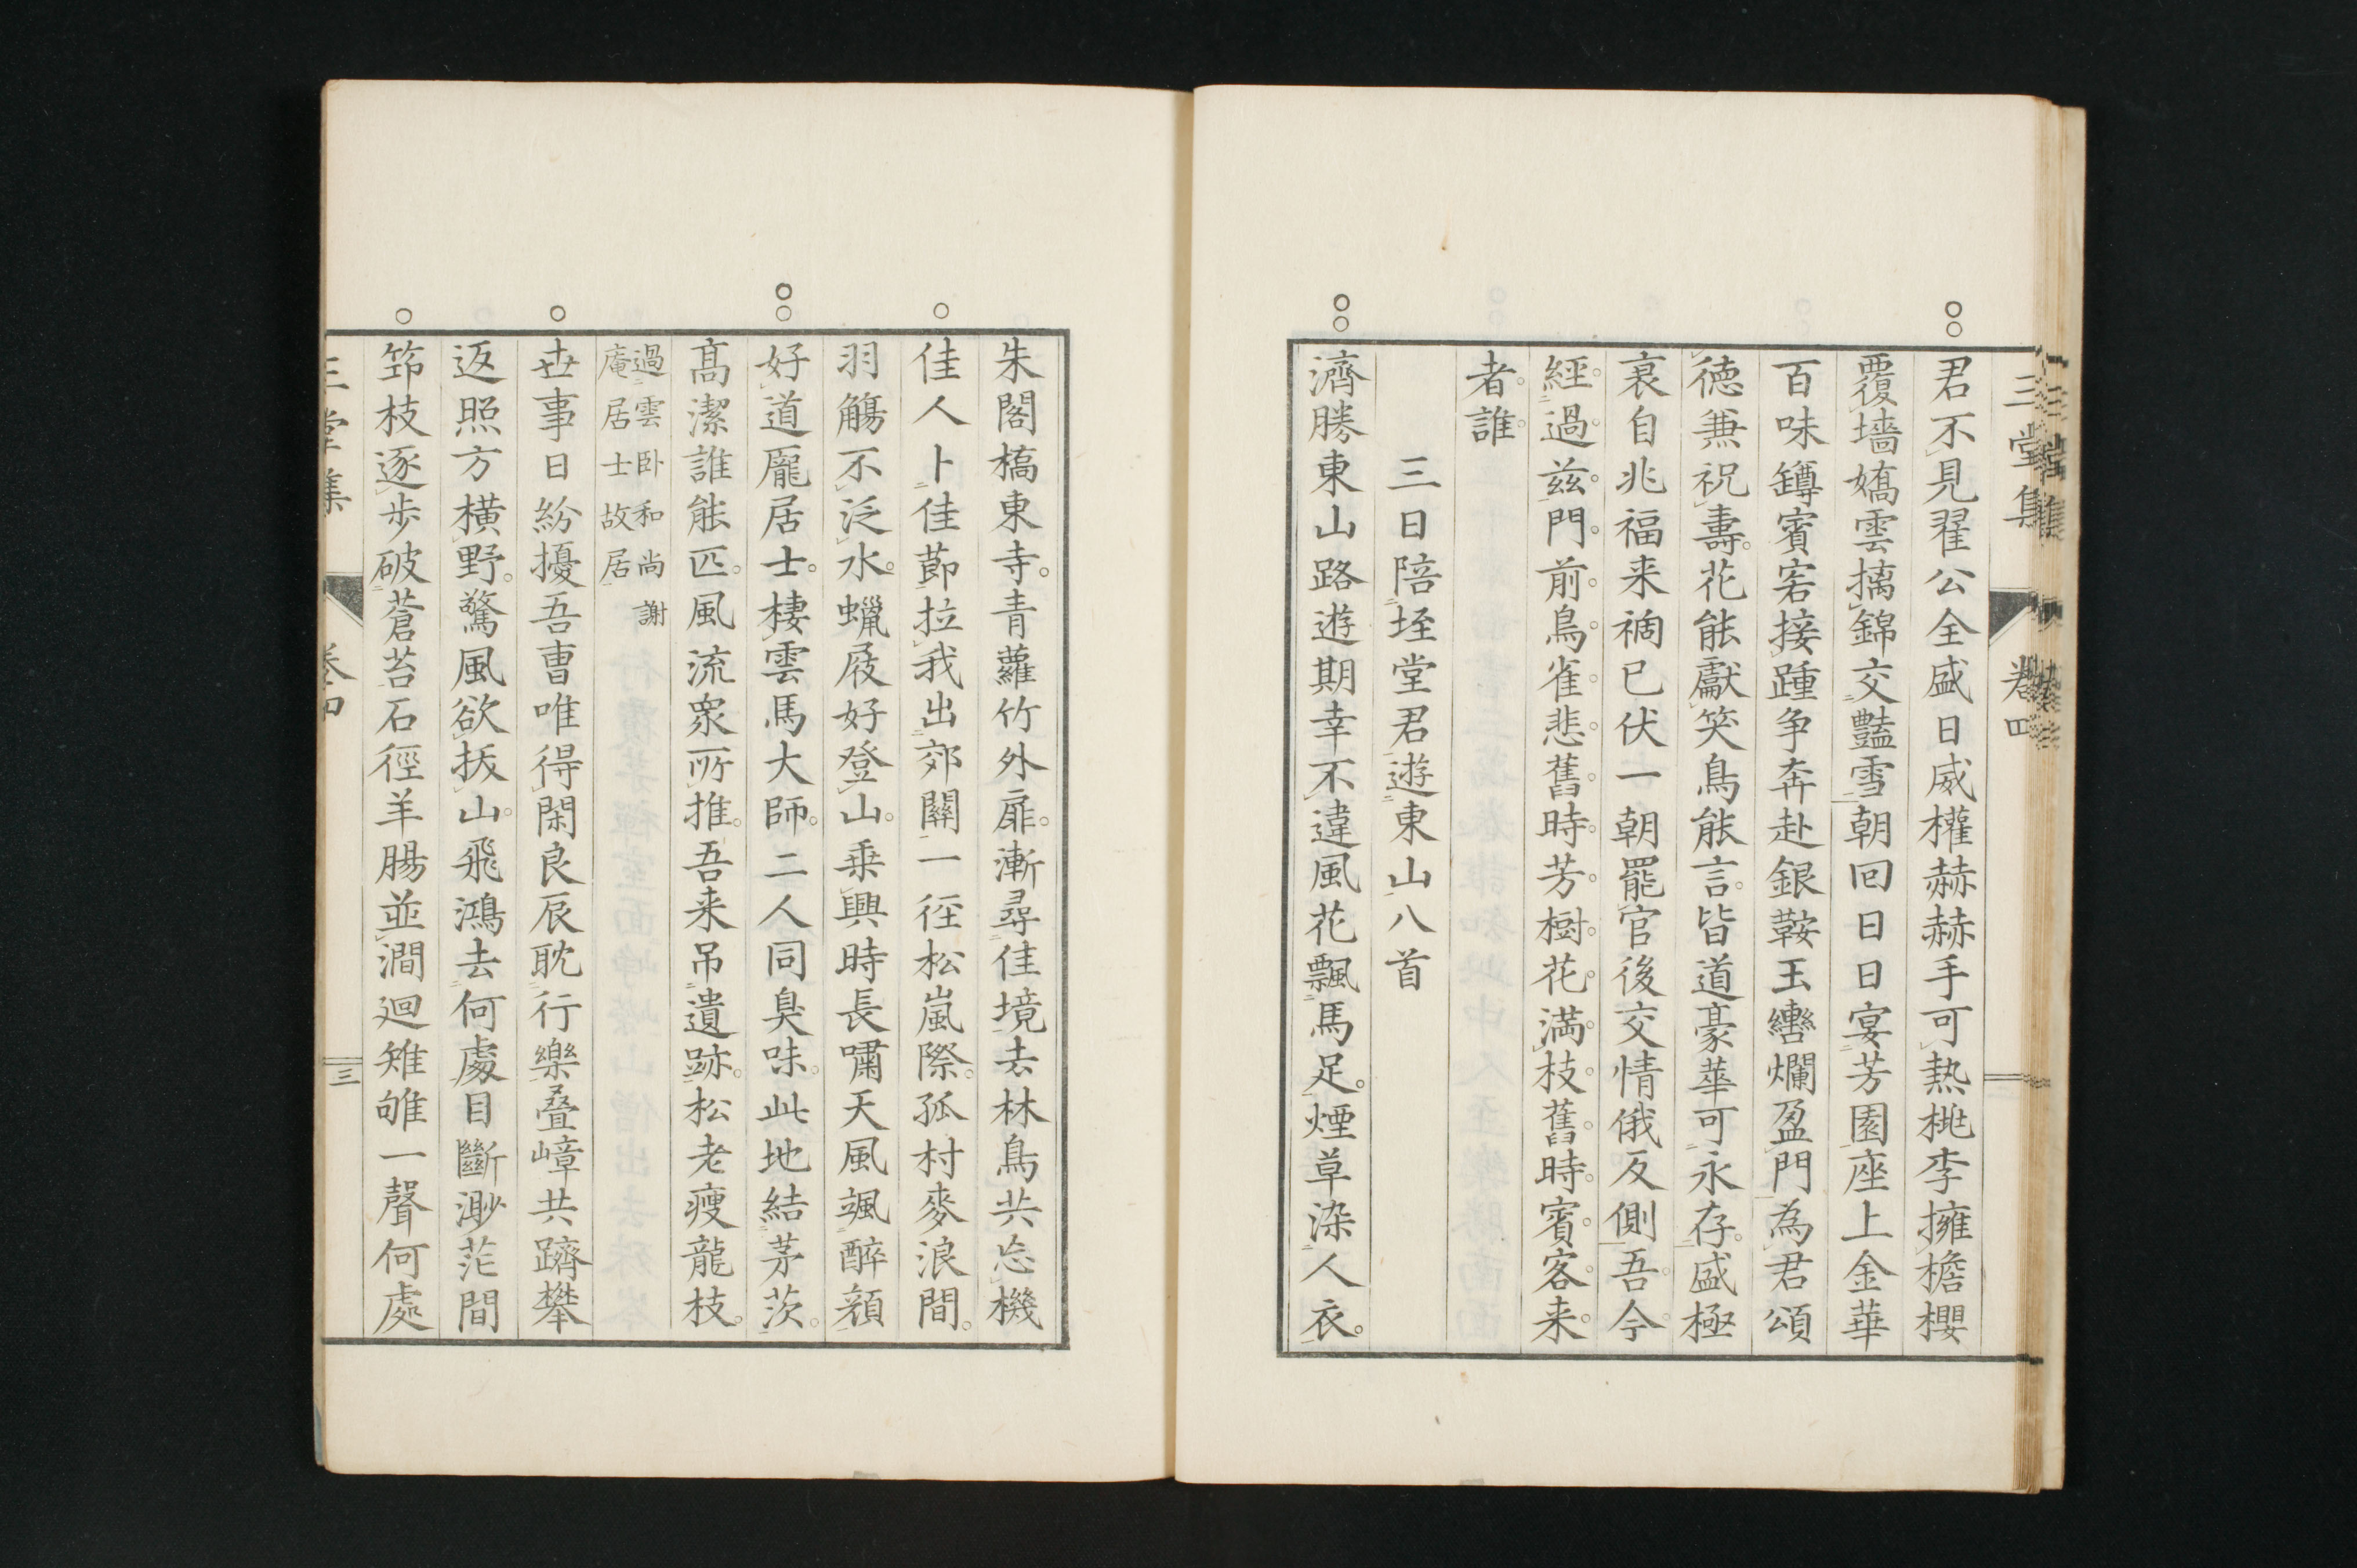 三堂集 卷四
君不見翟公全盛日威權赫赫手可熱桃李擁檐櫻
覆墻嬌雲摛錦交豔雪朝回日日宴芳園座上金華
百味罇賓客接踵争奔赴銀鞍玉轡爛盈門為君頌
徳兼祝壽。花能獻笑鳥能言。皆道豪華可永存。盛極
衰自兆福来禍已伏一朝罷官後交情俄反側吾。今。
經。過。茲。門。前。鳥。雀。悲。舊。時。芳。樹。花。満。枝。舊。時。賓。客。来。
者。誰。
三日陪垤堂君遊東山八首
濟勝東山路遊期幸不違風花飄馬足。煙草染人衣。
朱閣橋東寺。青蘿竹外扉。漸尋佳境去林鳥共忘機
佳人卜佳節拉我出郊關一徑松嵐際。孤村麥浪間。
羽觴不泛水。蠟屐好登山。乗興時長嘯天風颯醉顔
好道龐居士。棲雲馬大師。二人同臭味。此地結茅茨。
高潔誰能匹。風流衆所推。吾来吊遺跡。松老痩龍枝。
過雲卧和尚謝
庵居士故居
世事日紛擾吾曹唯得閑良辰耽行樂叠嶂共躋攀
返照方横野。驚風欲抜山。飛鴻去何處目斷渺茫間
筇枝逐步破蒼苔石徑羊腸並澗廻雉雊一聲何處
三堂集 卷四 三